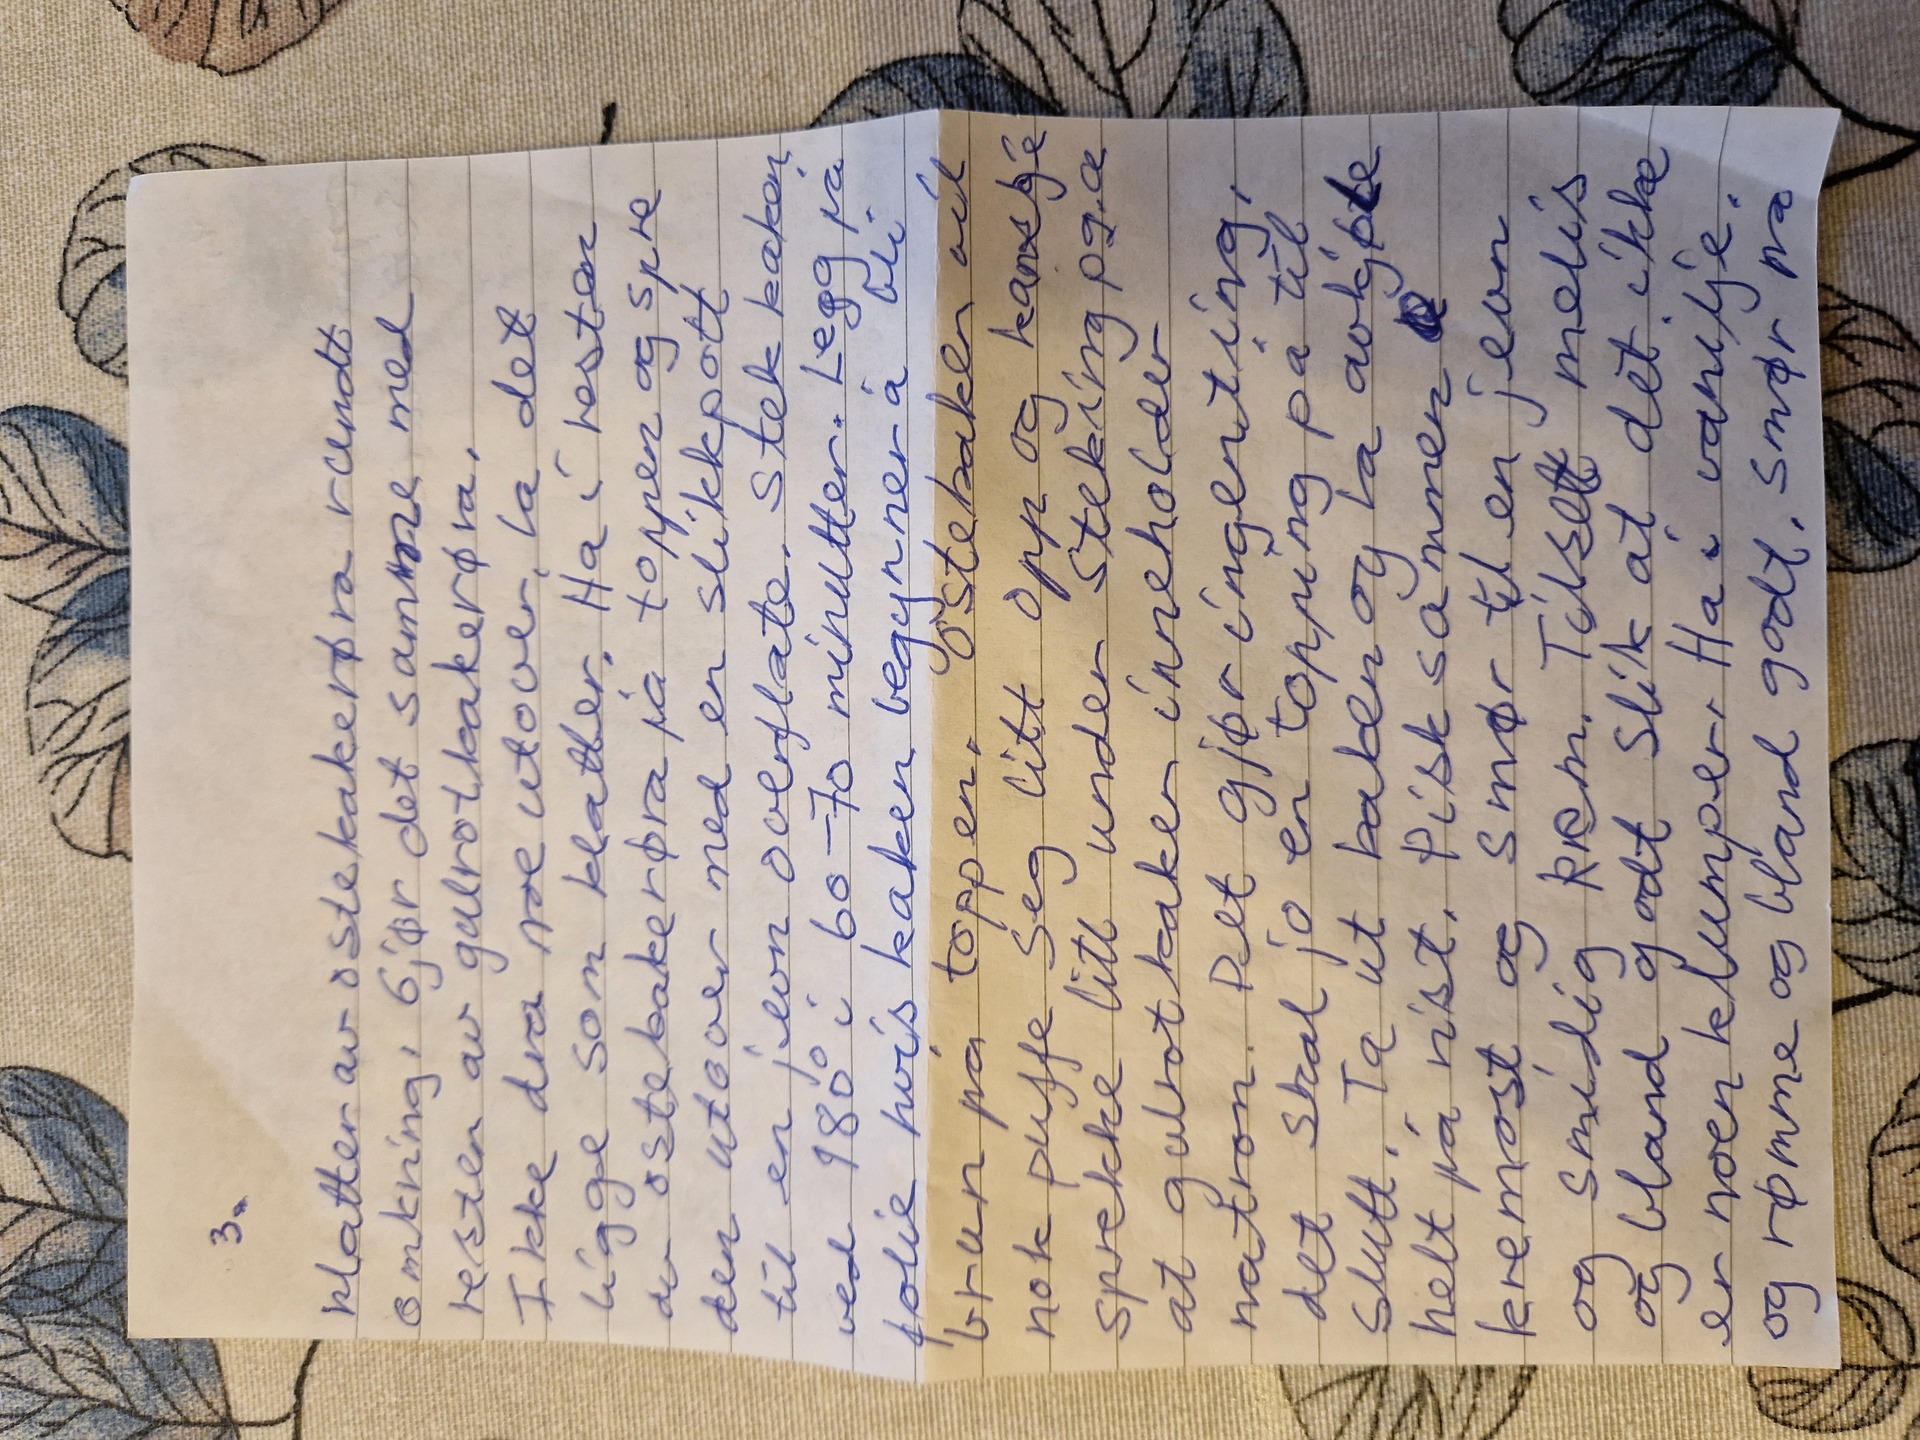 3.
klatter av ostekakerøra rundt
omkring. Gjør det samme med
resten av gulrotkakerøra.
Ikke dra noe utover, la det
ligge som klatter. Ha i resten
av ostekakerøra på toppen og spre
den utover med en slikkpott
til en jevn overflate. Stek kaken
ved 180° i 60-70 minutter. Legg på
folie hvis kaken begynner å bli
brun på toppen. Ostekaken vil
nok puffe seg litt opp og kanskje
sprekke litt under steking pg.a
at gulrotkaken inneholder
natron. Det gjør ingenting,
det skal jo en topping på til
slutt. Ta ut kaken og la avkjøle
helt på rist. Pisk sammen
kremost og smør til en jevn
og smidig krem. Tilsett melis
og bland godt slik at det ikke
er noen klumper. Ha i vanilje.
og rømme og bland godt. Smør på